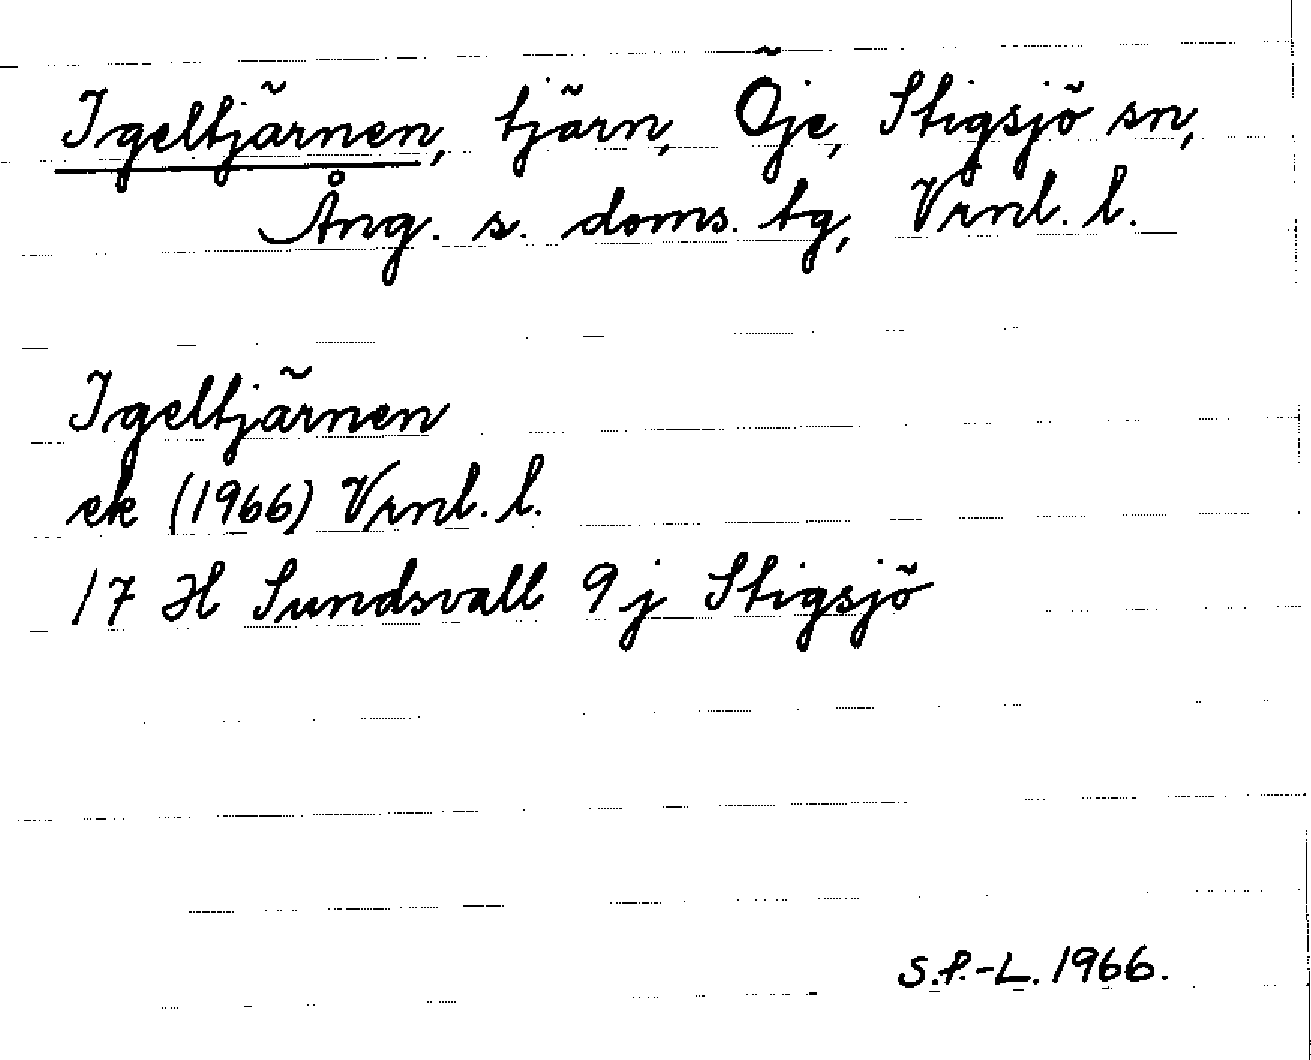 Igeltjärnen, tjärn, Öje, Stigsjö sn,
Ång. s. doms. tg, Vrnl. l.
Igeltjärnen
ek (1966) Vrnl. l.
17 H Sundsvall 9j Stigsjö
S.P.-L. 1966.